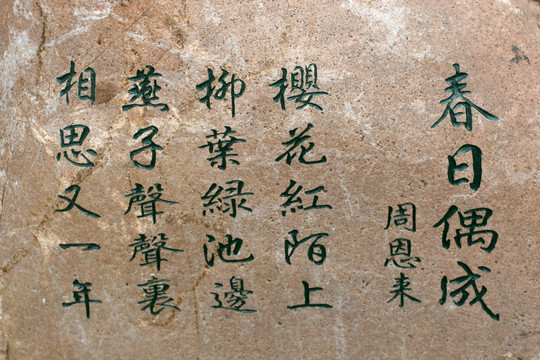 春日偶成
周恩来
櫻花紅陌上
柳葉綠池邊
燕子聲聲裏
相思又一年